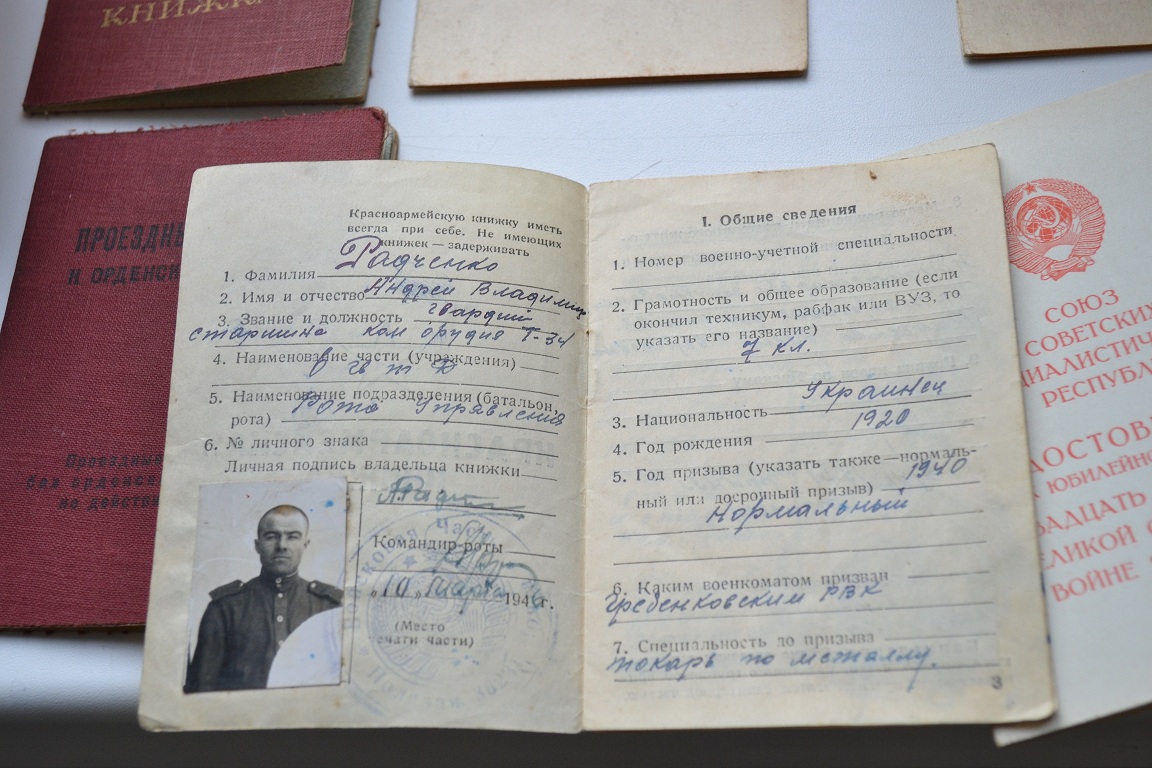 КНИЖКА
ПРОЕЗДНЫ
И ОРДЕНСК
Проездные
без орденск
не действ
Красноармейскую книжку иметь
всегда при себе. Не имеющих
книжек — задерживать
1. Фамилия Радченко
2. Имя и отчество Андрей Владимир
3. Звание и должность гвардии
старшина ком орудия Т-34
4. Наименование части (учреждения)
8 гв т
5. Наименование подразделения (батальон,
рота) Рота Управления
6. № личного знака
Личная подпись владельца книжки
Командир роты
„10„ марта 194 г.
(Место
печати части)
I. Общие сведения
1. Номер военно-учетной специальности
2. Грамотность и общее образование (если
окончил техникум, рабфак или ВУЗ, то
указать его название)
7 кл.
3. Национальность Украинец
4. Год рождения 1920
5. Год призыва (указать также—нормаль-
ный или досрочный призыв) 1940
Нормальный
6. Каким военкоматом призван
Гребенковским РВК
7. Специальность до призыва
токарь по металлу.
3
СОЮЗ
СОВЕТСКИХ
ИАЛИСТИЧ
РЕСПУБЛ
ДОСТОВ
ЮБИЛЕЙНО
ВАДЦАТЬ
ЕЛИКОЙ
ВОЙНЕ